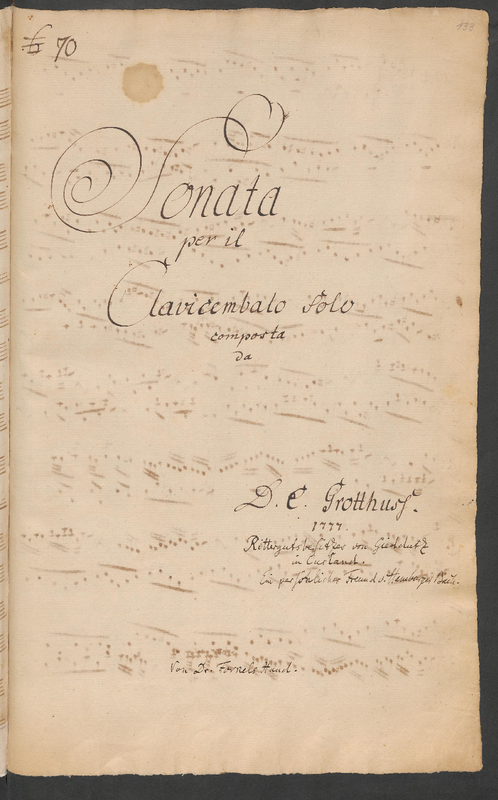 133
70
Sonata
per il
Clavicembalo Solo
composta
da
D. E. Grotthuss.
1777.
Rittergutsbesitzer von Gieddutz
in Curland.
Ein persönlicher Freund d. Hamburger Bach.
Von Dr. Forkels Hand.